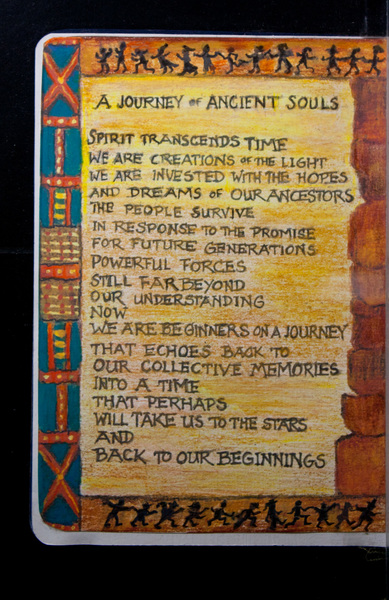 A JOURNEY OF ANCIENT SOULS
SPIRIT TRANSCENDS TIME
WE ARE CREATIONS OF THE LIGHT
WE ARE INVESTED WITH THE HOPES
AND DREAMS OF OUR ANCESTORS
THE PEOPLE SURVIVE
IN RESPONSE TO THE PROMISE
FOR FUTURE GENERATIONS
POWERFUL FORCES
STILL FAR BEYOND
OUR UNDERSTANDING
NOW
WE ARE BEGINNERS ON A JOURNEY
THAT ECHOES BACK TO
OUR COLLECTIVE MEMORIES
INTO A TIME
THAT PERHAPS
WILL TAKE US TO THE STARS
AND
BACK TO OUR BEGINNINGS